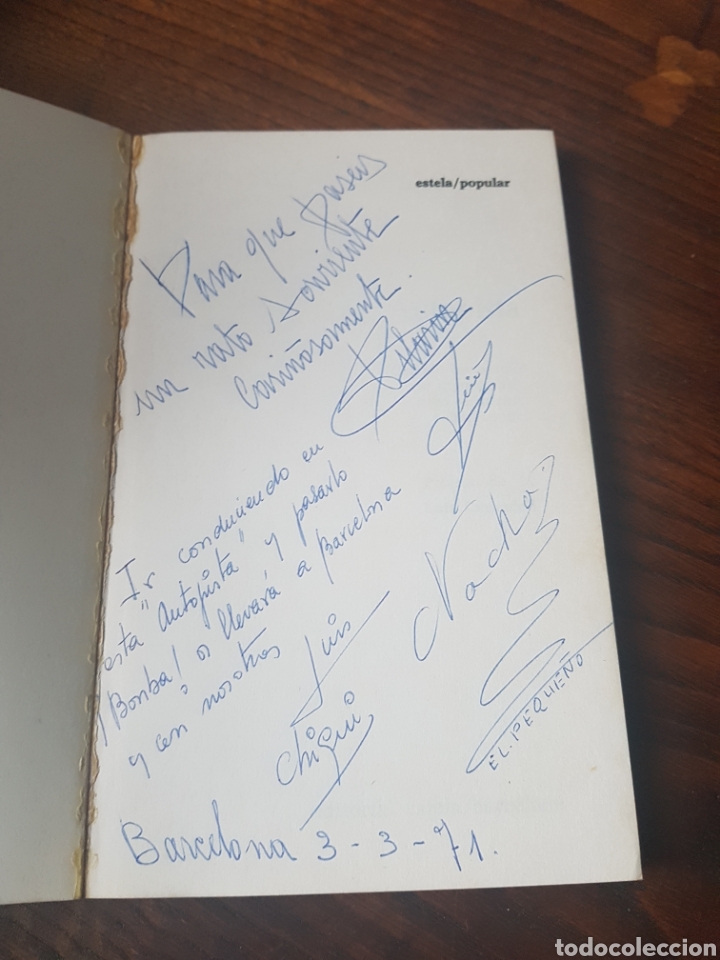 estela/popular
Para que paseis
un rato sonriente
Cariñosamente.
Luis
Ir conduciendo en
esta "Autopista" y pasarlo
¡Bomba! os llevará a Barcelona
y con nosotros
Luis
Chiqui
Nacho
EL PEQUEÑO
Barcelona 3-3-71.
todocoleccion